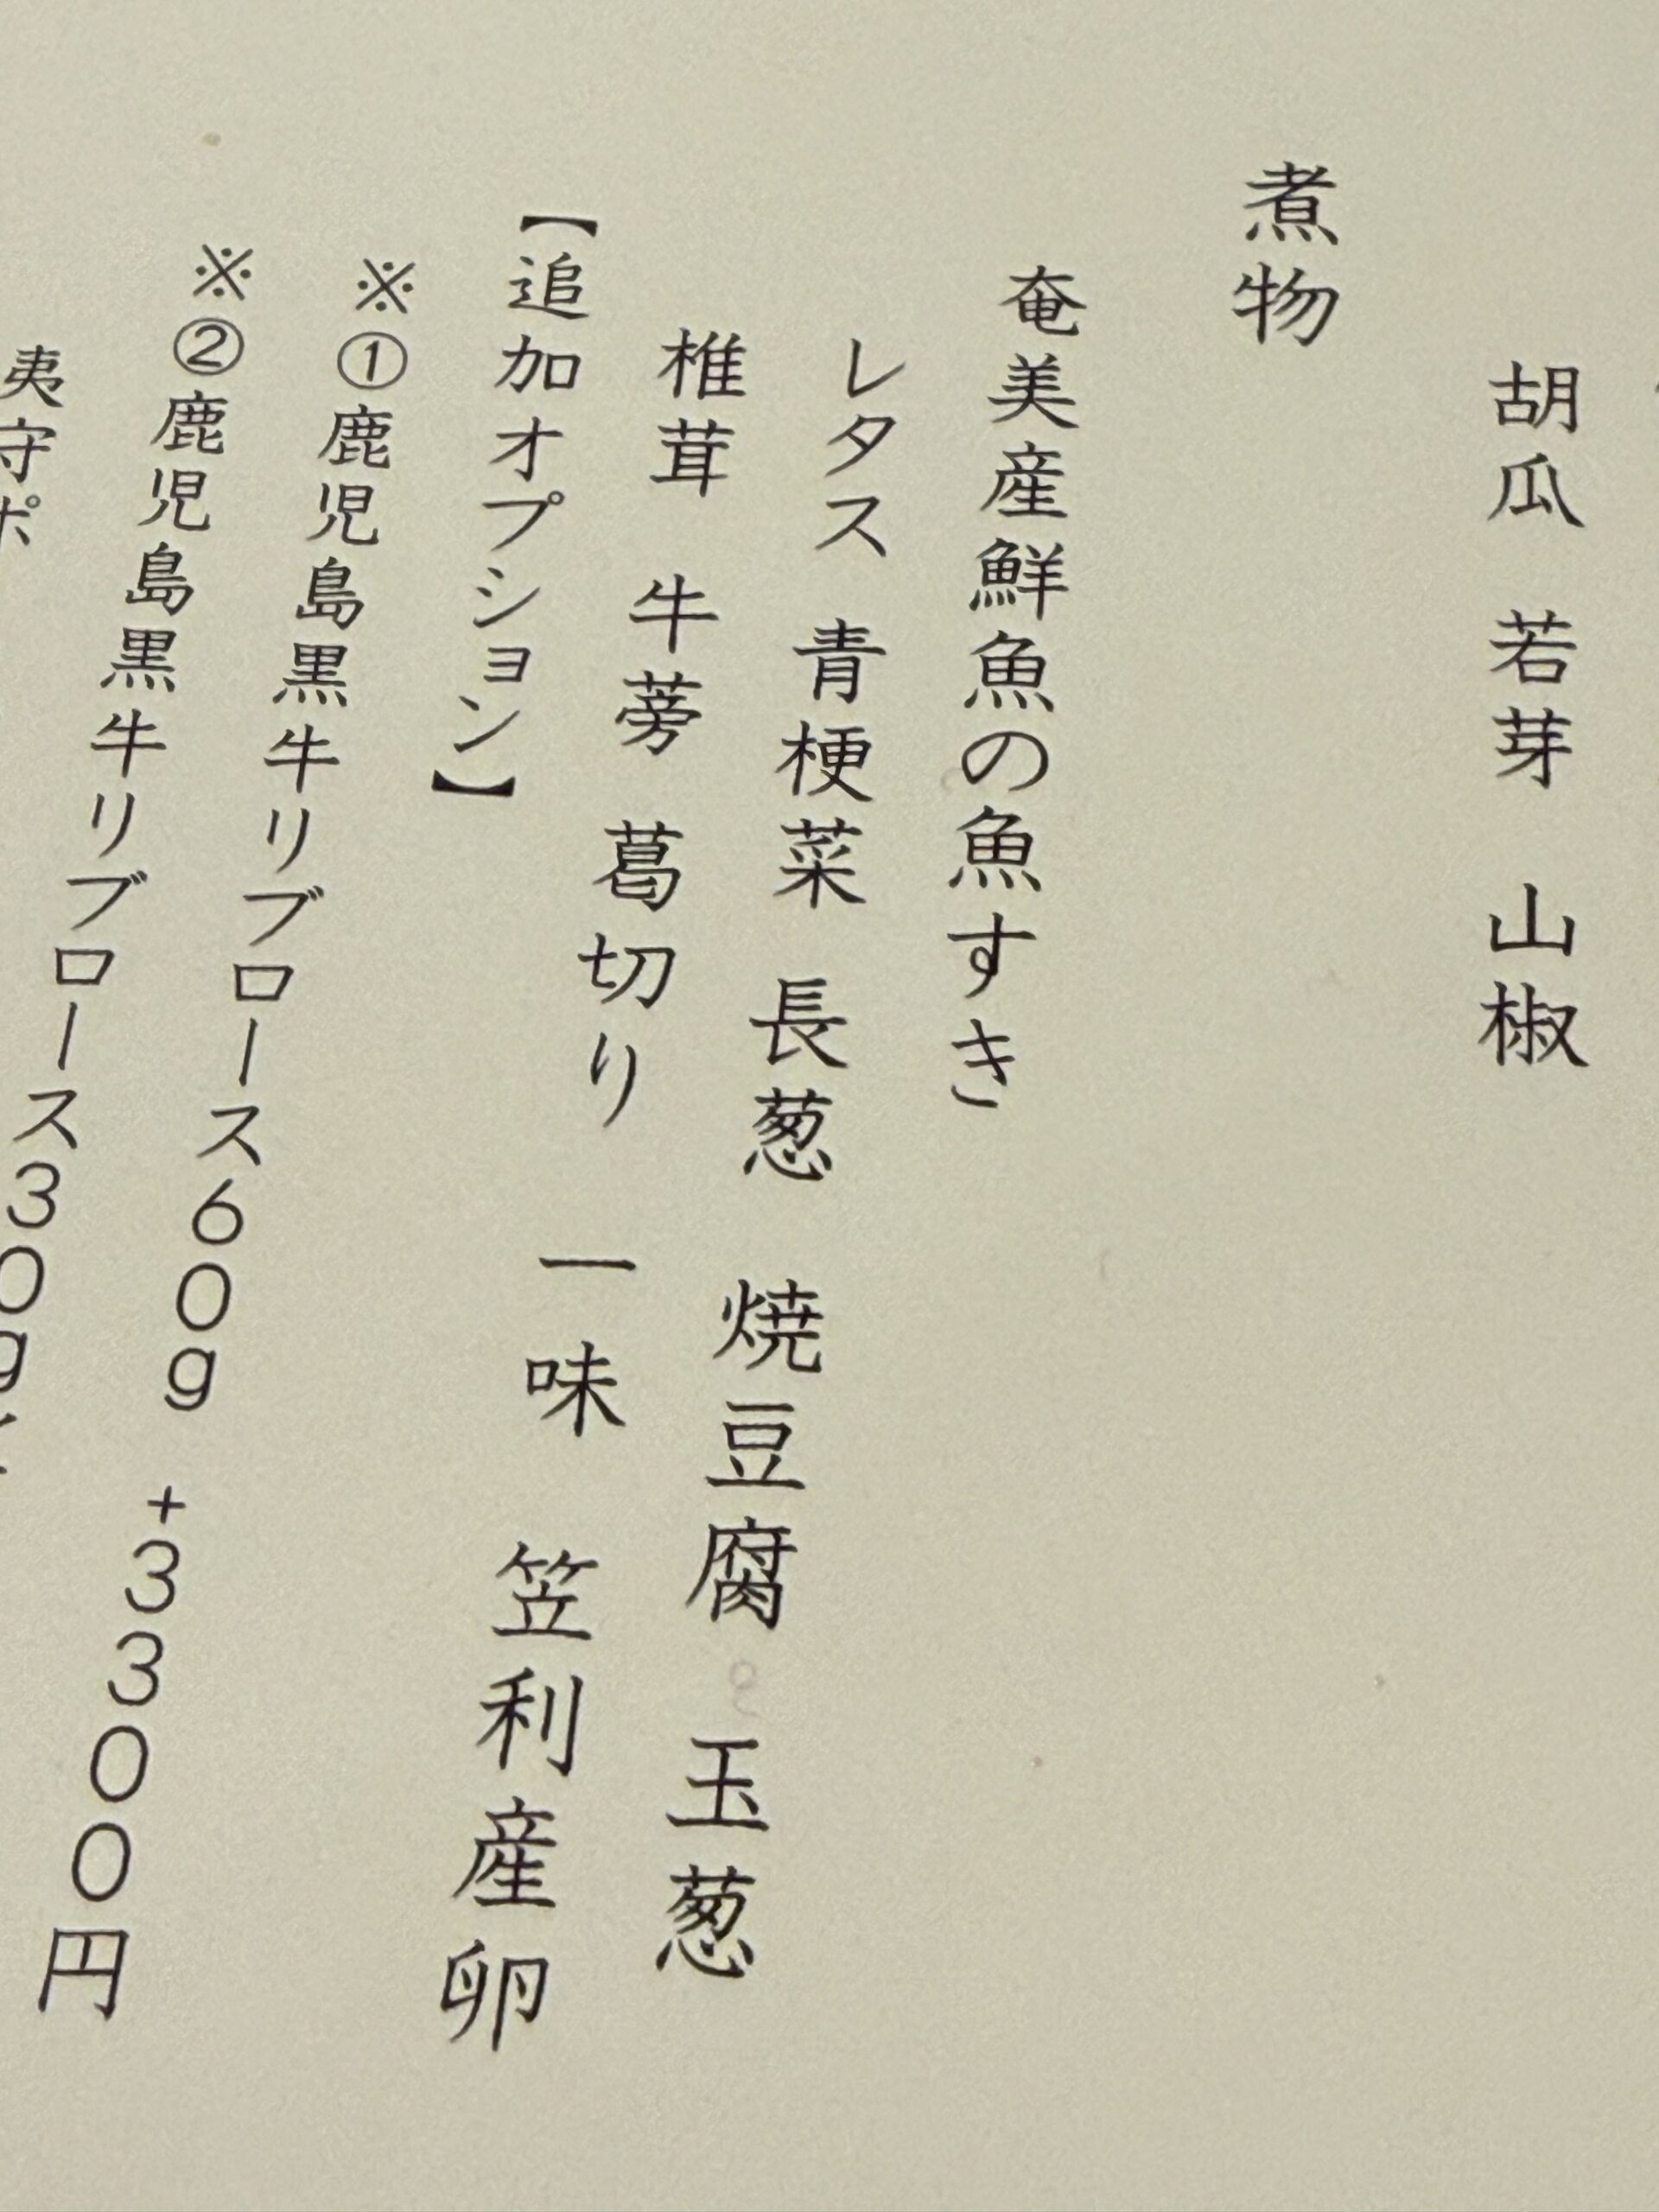 胡瓜　若芽　山椒
煮物
奄美産鮮魚の魚すき
レタス　青梗菜　長葱　焼豆腐　玉葱
椎茸　牛蒡　葛切り　一味　笠利産卵
【追加オプション】
※①鹿児島黒牛リブロース60g　+3300円
※②鹿児島黒牛リブロース30g
夷守ポ